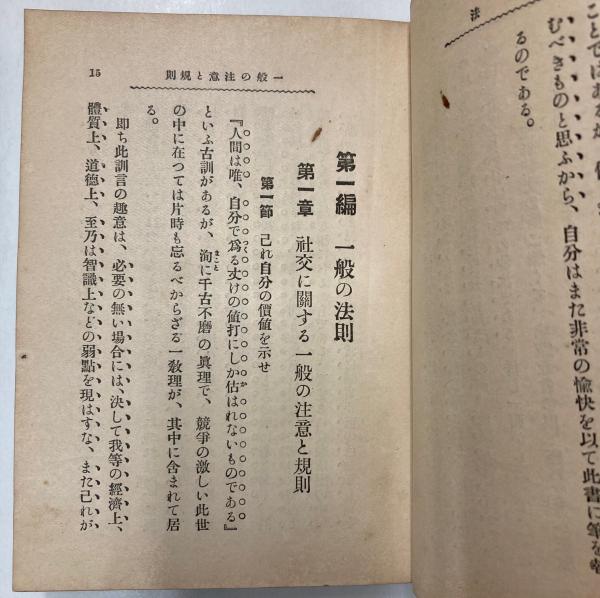 法
ことではあるが、
むべきものと思ふから、自分はまた非常の愉快を以て此書に筆を
るのである。
一般の注意と規則
15
第一編 一般の法則
第一章 社交に關する一般の注意と規則
第一節 己れ自分の價値を示せ
『人間は唯、自分で爲る丈けの値打にしか估はれないものである』
といふ古訓があるが、洵に千古不磨の眞理で、競爭の激しい此世
の中に在つては片時も忘るべからざる一敎理が、其中に含まれて居
る。
卽ち此訓言の趣意は、必要の無い場合には、決して我等の經濟上、
體質上、道德上、至乃は智識上などの弱點を現はすな、また己れが